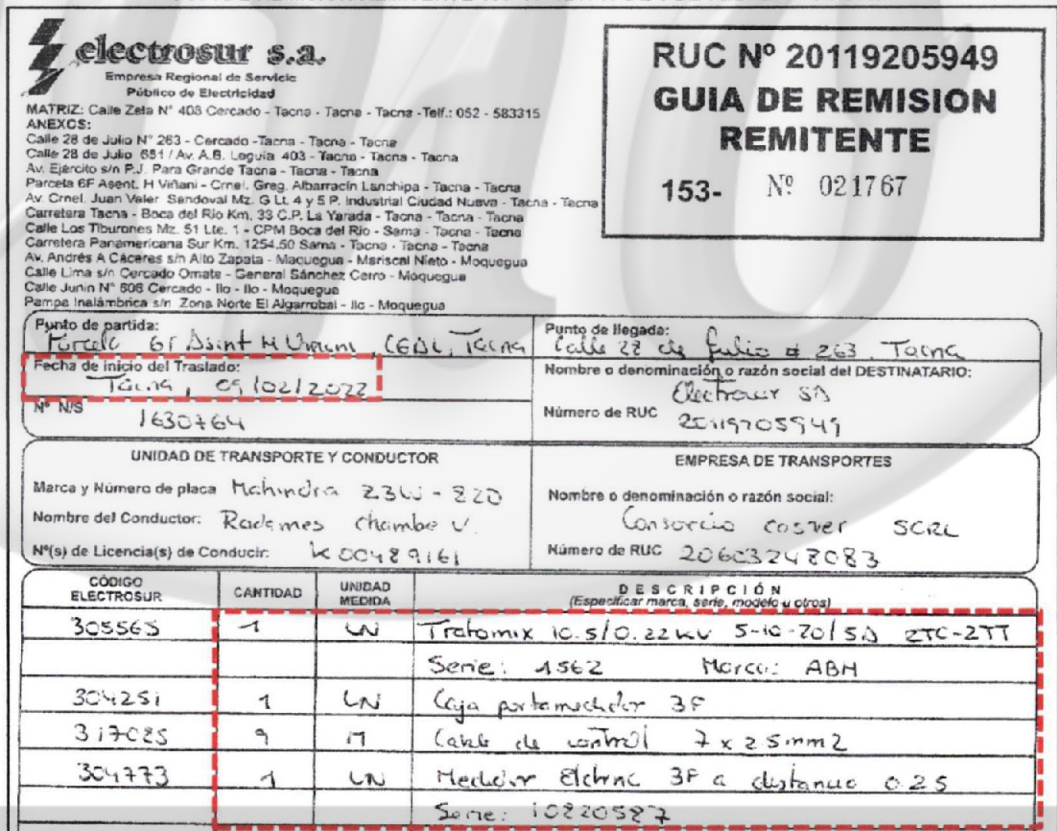 electrosur s.a.
Empresa Regional de Servicio
Público de Electricidad
MATRIZ: Calle Zela N° 403 Cercado - Tacna - Tacna - Tacna -Telf.: 052 - 583315
ANEXOS:
Calle 28 de Julio N° 263 - Cercado -Tacna - Tacna - Tacna
Calle 28 de Julio 651 / Av. A.B. Leguia 403 - Tacna - Tacna - Tacna
Av. Ejercito s/n P.J. Para Grande Tacna - Tacna - Tacna
Parcela 6F Asent. H Viñani - Crnel. Greg. Albarracín Lanchipa - Tacna - Tacna
Av. Crnel. Juan Valer Sandoval Mz. G Lt. 4 y 5 P. Industrial Ciudad Nueva - Tacna - Tacna
Carretera Tacna - Boca del Rio Km. 33 C.P. La Yarada - Tacna - Tacna - Tacna
Calle Los Tiburones Mz. 51 Lte. 1 - CPM Boca del Rio - Sama - Tacna - Tacna
Carretera Panamericana Sur Km. 1254.50 Sama - Tacna - Tacna - Tacna
Av. Andrés A Cáceres s/n Alto Zapata - Moquegua - Mariscal Nieto - Moquegua
Calle Lima s/n Cercado Omate - General Sánchez Cerro - Moquegua
Calle Junin N° 606 Cercado - Ilo - Ilo - Moquegua
Pampa Inalámbrica s/n Zona Norte El Algarrobal - Ilo - Moquegua
RUC Nº 20119205949
GUIA DE REMISION
REMITENTE
153- Nº 021767
Punto de partida:
Parcela 6F Asint H , Tacna
Punto de llegada:
Calle 28 de Julio # 263, Tacna
Fecha de inicio del Traslado:
Tacna, 09/02/2022
Nombre o denominación o razón social del DESTINATARIO:
Electrosur SA
Nº N/S
1630764
Número de RUC 20119205949
UNIDAD DE TRANSPORTE Y CONDUCTOR
Marca y Número de placa Mahindra Z3W - 820
Nombre del Conductor: Radames Chambe V.
Nº(s) de Licencia(s) de Conducir: K00489161
EMPRESA DE TRANSPORTES
Nombre o denominación o razón social:
Consorcio Cosver SCRL
Número de RUC 20603248083
CÓDIGO ELECTROSUR CANTIDAD UNIDAD MEDIDA DESCRIPCIÓN
(Especificar marca, serie, modelo u otros)
305565 1 UN Trafomix 10.5/0.22 KV 5-10-20/5A 2TC-2TT
Serie: 1562 Marca: ABH
304251 1 UN Caja portamedidor 3F
317085 9 M Cable de control 7 x 2.5mm2
304773 1 UN Medidor Elctrnc 3F a distancia 0.2S
Serie: 10820587